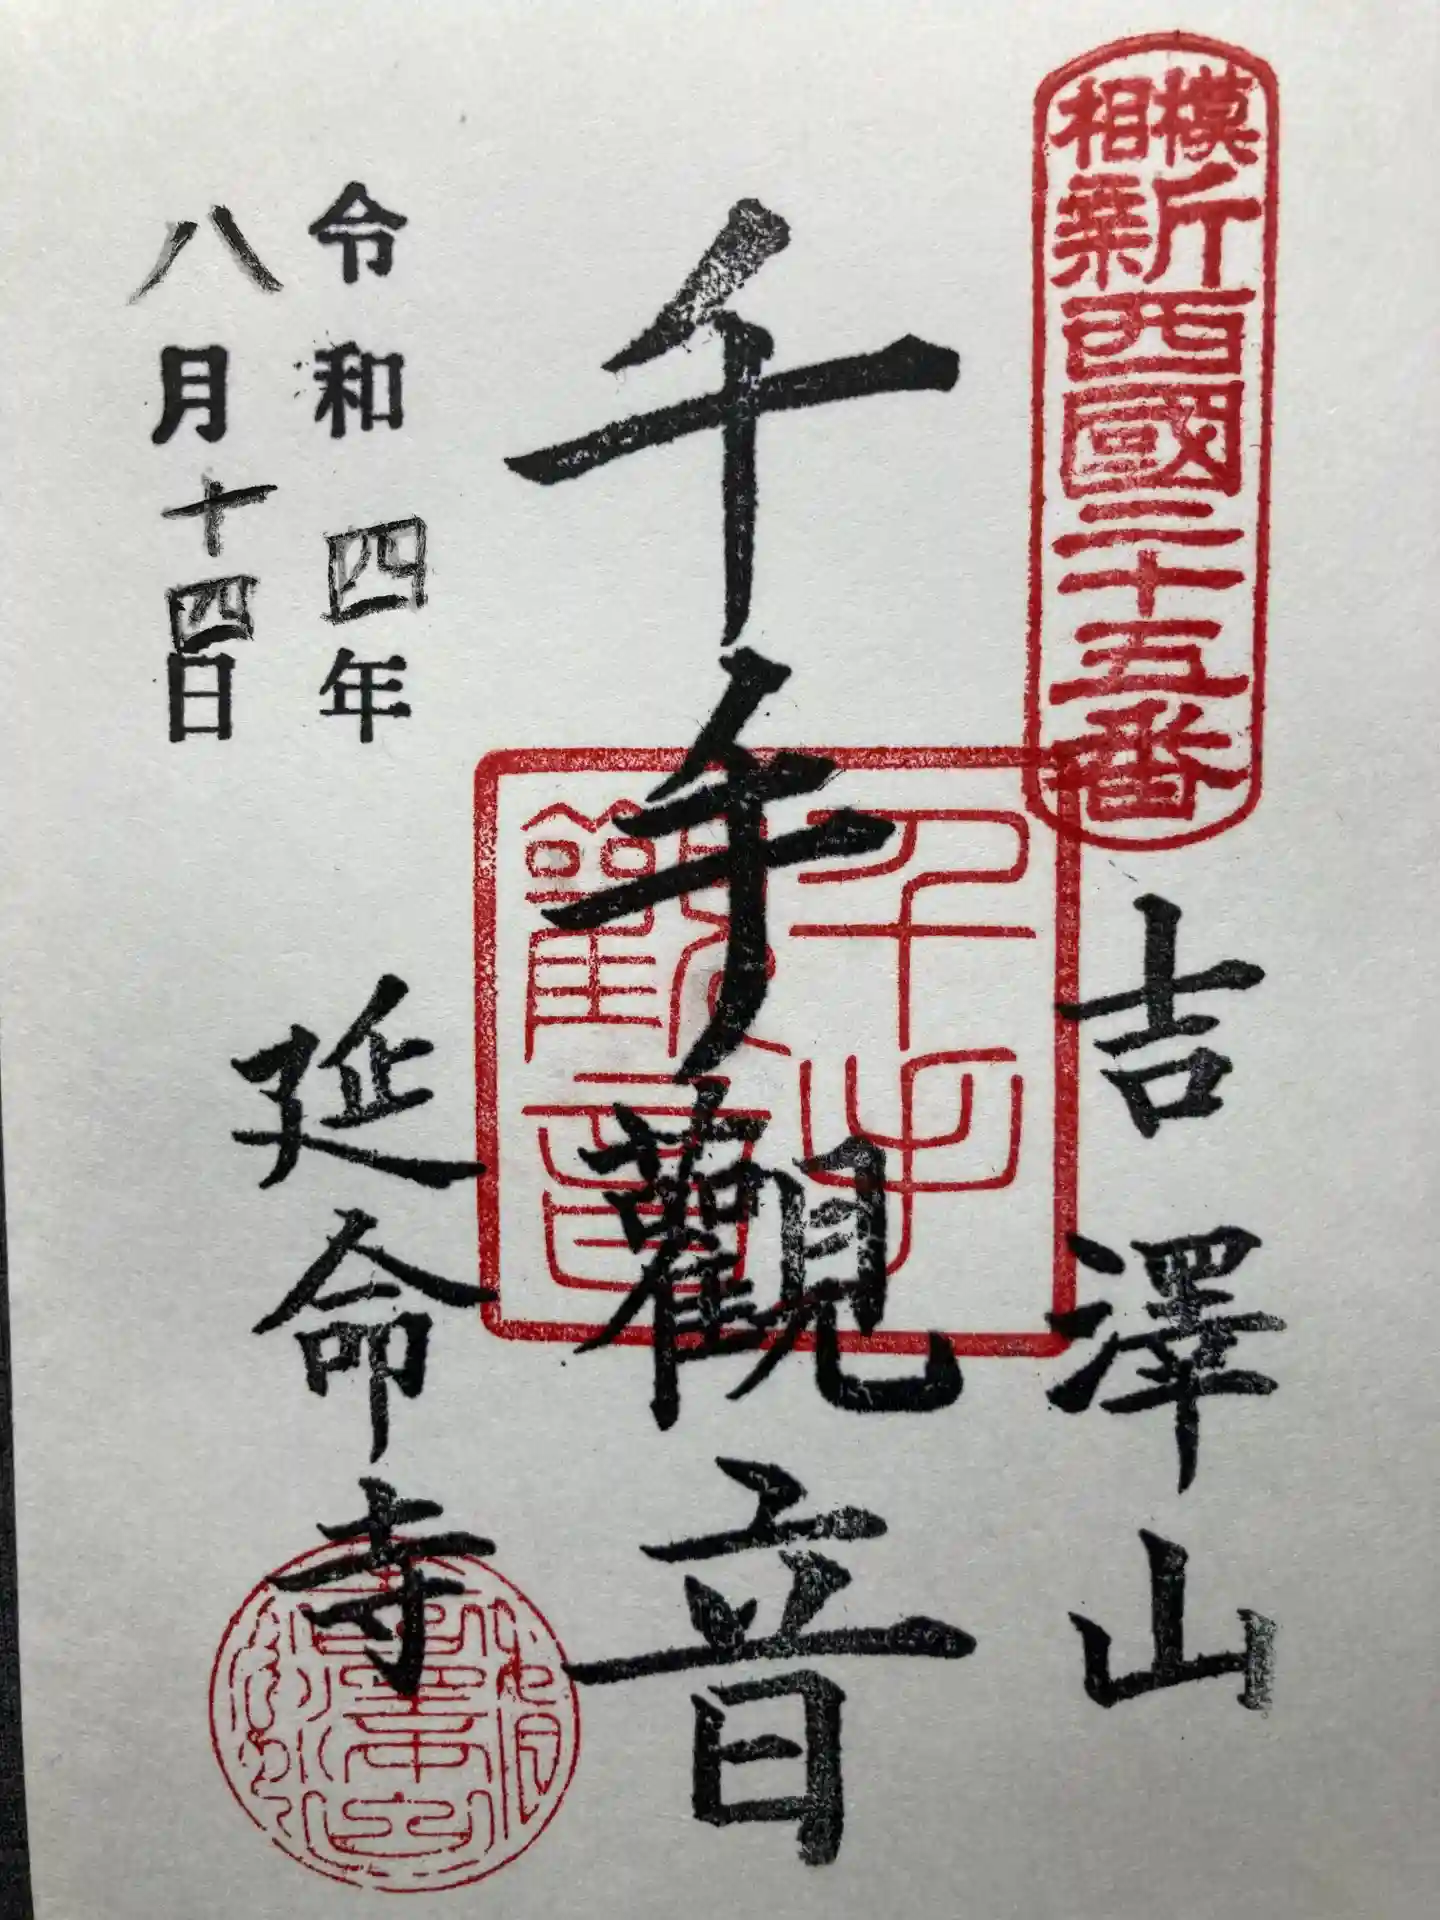 相模
新西國二十五番
吉澤山
千手觀音
千手
觀音
令和四年
八月十四日
延命寺